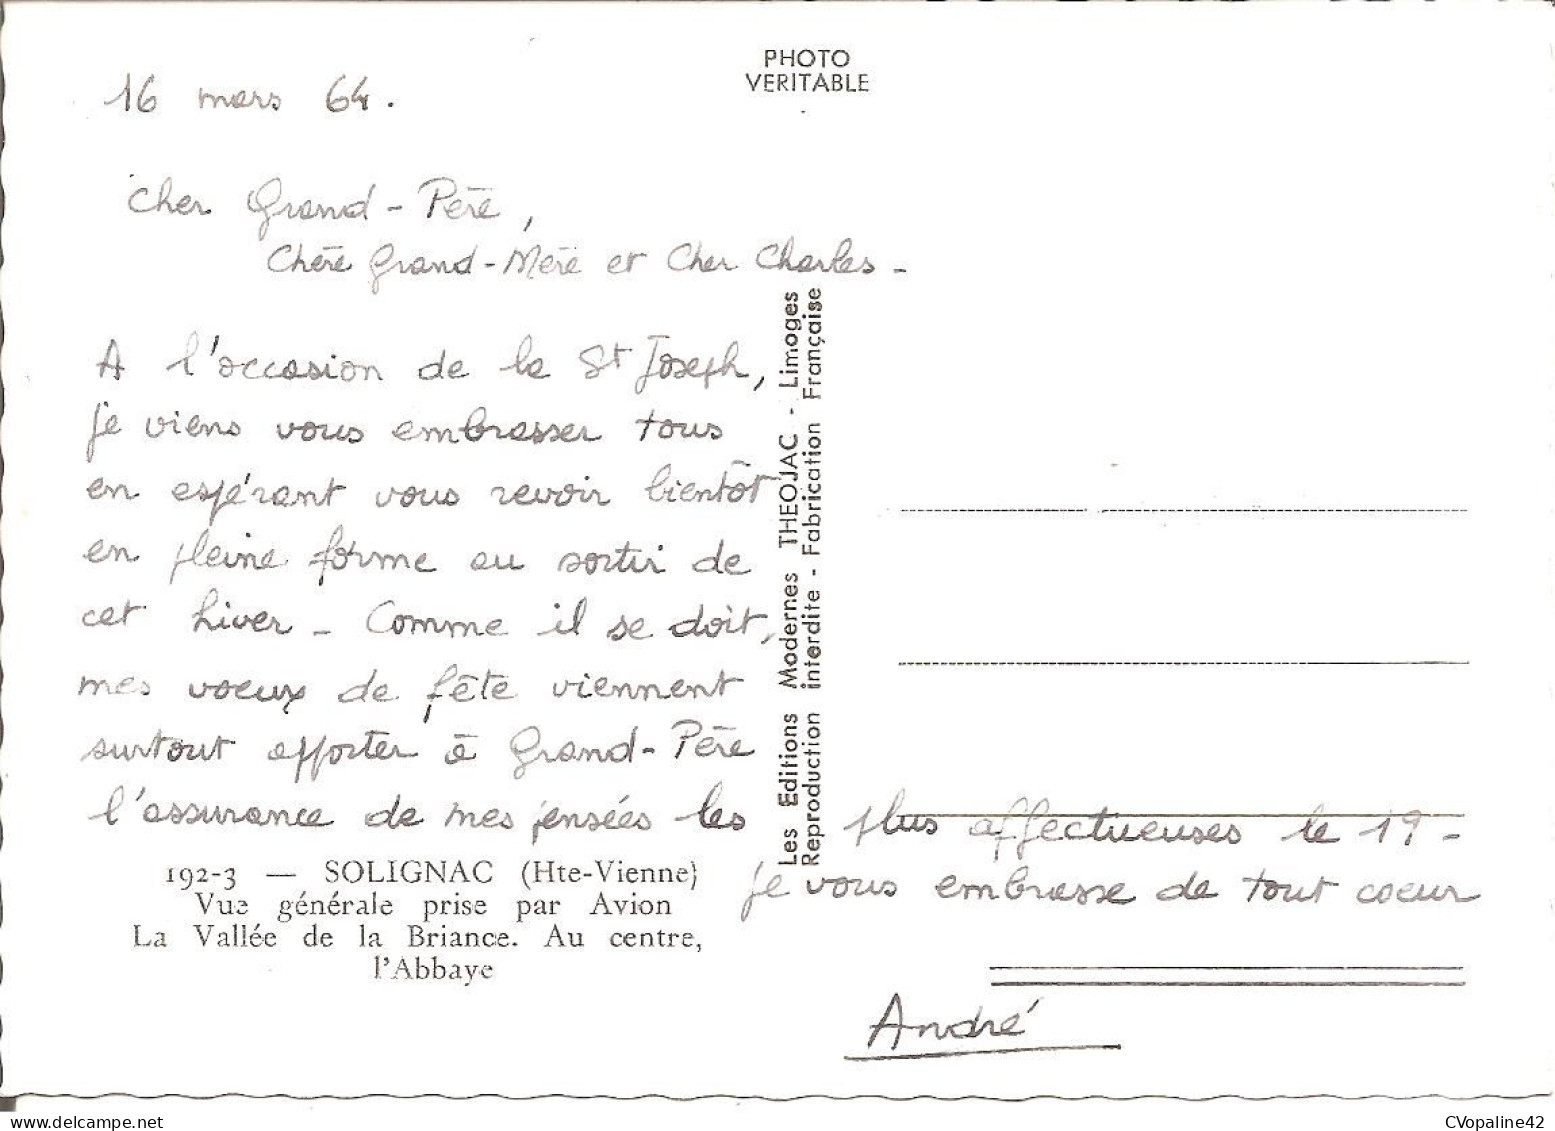 PHOTO
VERITABLE
16 mars 64.
Cher Grand-Père,
Chère Grand-Mère et Cher Charles -
A l'occasion de la St Joseph,
je viens vous embrasser tous
en espérant vous revoir bientôt
en pleine forme au sortir de
cet hiver - Comme il se doit,
mes voeux de fête viennent
surtout apporter à Grand-Père
l'assurance de mes pensées les plus affectueuses le 19 -
je vous embrasse de tout coeur
André
192-3 — SOLIGNAC (Hte-Vienne)
Vue générale prise par Avion
La Vallée de la Briance. Au centre,
l'Abbaye
Les Editions Modernes THEOJAC - Limoges
Reproduction interdite - Fabrication Française
CVopaline42